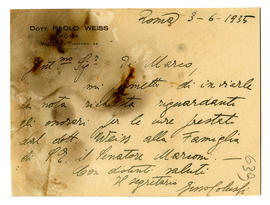 Dott PAOLO WEISS
ROMA
Roma 3-6-1935
Gent.mo Sig. Di Marco,
mi permetto di inviarle
la nota richiesta riguardante
gli onorari per le cure prestate
dal dott. Weiss alla Famiglia
di S.E. il Senatore Marconi.
Con distinti saluti
Il segretario
639